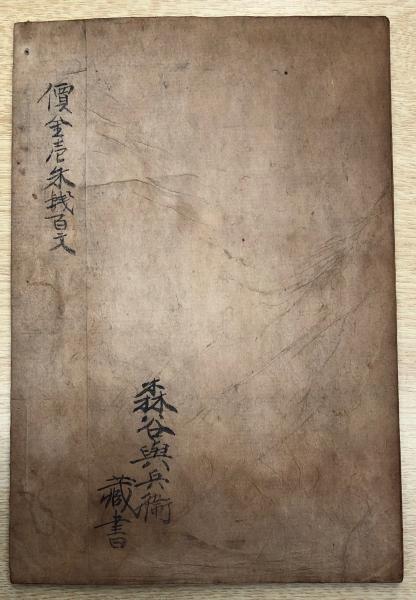 森谷與兵衛
藏書
價金壱朱銭百文